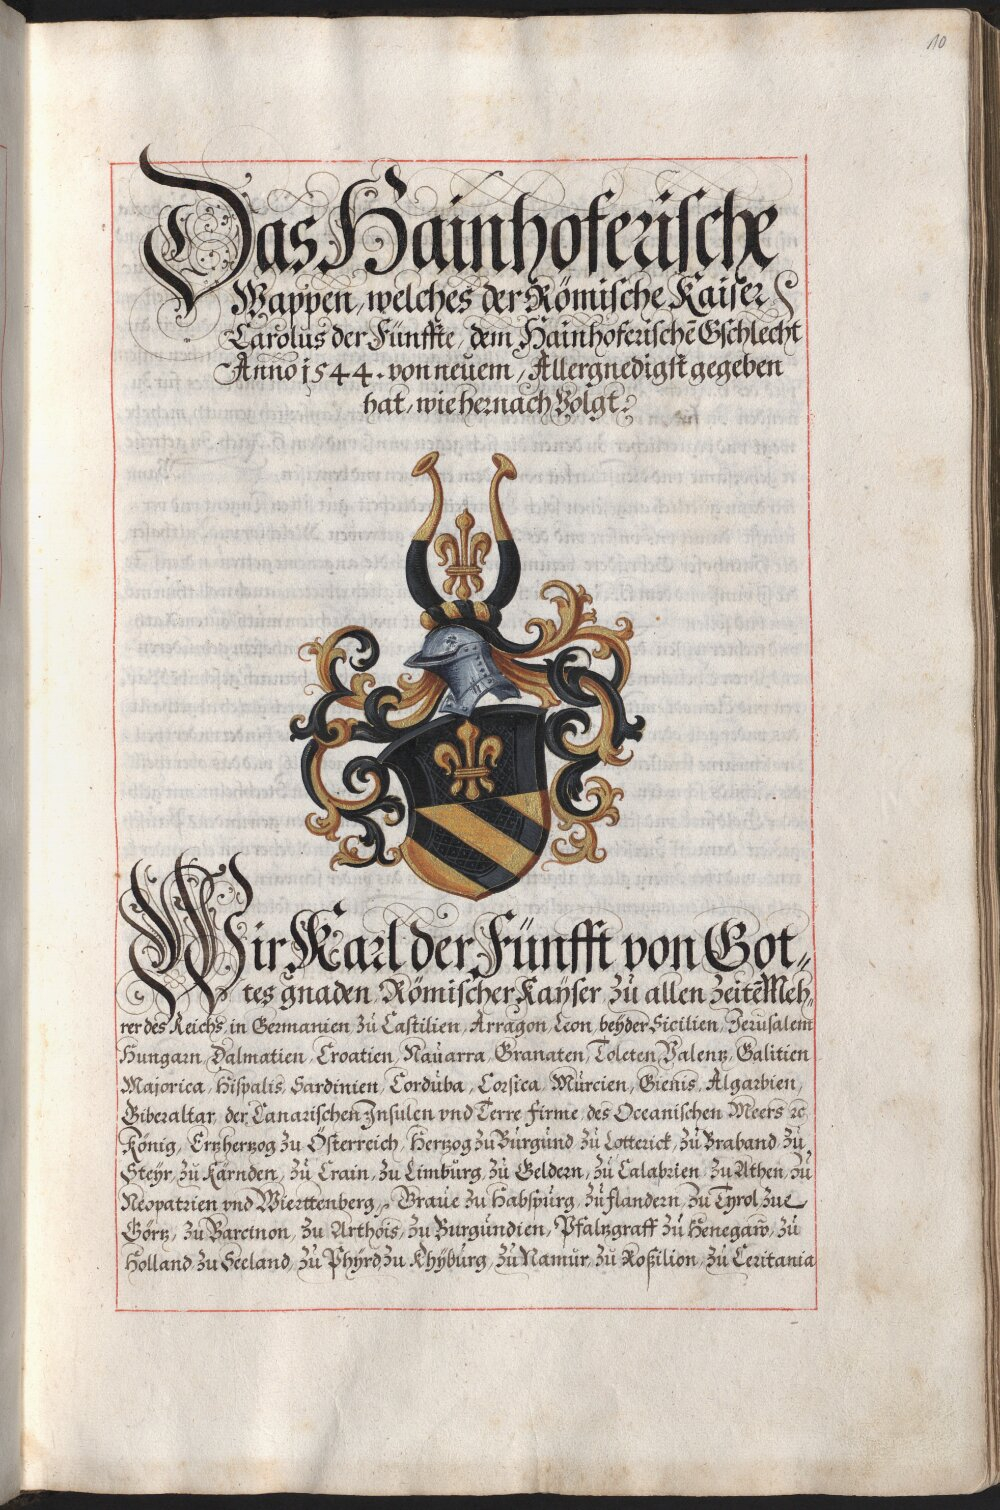 10
Das Hainhoferische
Wappen, welches der Römische Kaiser
Carolus der Fünffte, dem Hainhoferischē Gschlecht
Anno 1544. von neüem, Allergnedigst gegeben
hat, wie hernach Volgt:
Wir Karl der Fünfft von Got„
tes gnaden, Römischer Kaÿser, zů allen zeitē Meh„
rer des Reichs, in Germanien, zů Castilien, Arragon, Leon, beÿder Sicilien, Jerusalem
Hungarn, Dalmatien, Croatien, Nauarra, Granaten, Toleten, Valentz, Galitien
Majorica, Hispalis, Sardinien, Corduba, Corsica, Murcien, Gienis, Algarbien,
Giberaltar, der Canarischen Insulen vnd Terre firme, des Oceanischen Meers ꝛc
König, Ertzhertzog zu Österreich, Hertzog zu Burgund, zů Lotterick, zů Braband, zů
Steÿr, zů Kärnden, zů Crain, zu Limburg, zů Geldern, zů Calabrien, zu Athen, zů
Neopatrien vnd Wierttenberg, Graue zu Habspurg, zů flandern, zu Tyrol, zue
Görtz, zů Barcinon, zu Arthois, zu Burgundien, Pfaltzgraff zů Henegaw, zů
Holland, zu Seeland, zů Phÿrd, zu Khÿburg, zů Namur, zů Roßilion, zů Ceritania